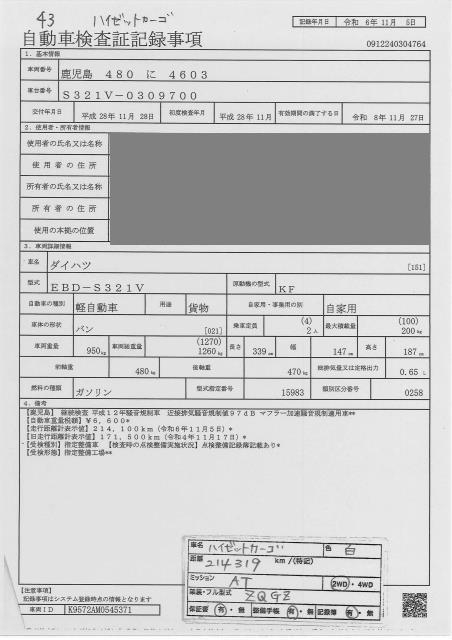 43 ハイゼットカーゴ
記録年月日 令和 6年11月 5日
自動車検査証記録事項
0912240304764
1. 基本情報
車両番号 鹿児島 480 に 4603
車台番号 S321V-0309700
交付年月日 平成28年11月28日 初度検査年月 平成28年11月 有効期間の満了する日 令和 8年11月27日
2. 使用者・所有者情報
使用者の氏名又は名称
使用者の住所
所有者の氏名又は名称
所有者の住所
使用の本拠の位置
3. 車両詳細情報
車名 ダイハツ [151]
型式 EBD-S321V 原動機の型式 KF
自動車の種別 軽自動車 用途 貨物 自家用・事業用の別 自家用
車体の形状 バン [021] 乗車定員 (4) 2人 最大積載量 (100) 200kg
車両重量 950kg 車両総重量 (1270) 1260kg 長さ 339cm 幅 147cm 高さ 187cm
前軸重 480kg 後軸重 470kg 総排気量又は定格出力 0.65 L
燃料の種類 ガソリン 型式指定番号 15983 類別区分番号 0258
4. 備考
【鹿児島】 継続検査 平成12年騒音規制車 近接排気騒音規制値97dB マフラー加速騒音規制適用車**
【自動車重量税額】¥6,600*
【走行距離計表示値】214,100km(令和6年11月5日)*
【旧走行距離計表示値】171,500km(令和4年11月17日)*
【受検種別】指定整備車 【検査時の点検整備実施状況】点検整備記録簿記載あり*
【受検形態】指定整備工場**
車名 ハイゼットカーゴ 色 白
距離 214319 km/(特記)
ミッション AT 2WD・4WD
架装・フル型式 ZQGZ
保証書 有・無 整備手帳 有・無 記録簿 有・無
【注意事項】
記録事項はシステム登録時点の情報となります
車両ID K9572AM0545371